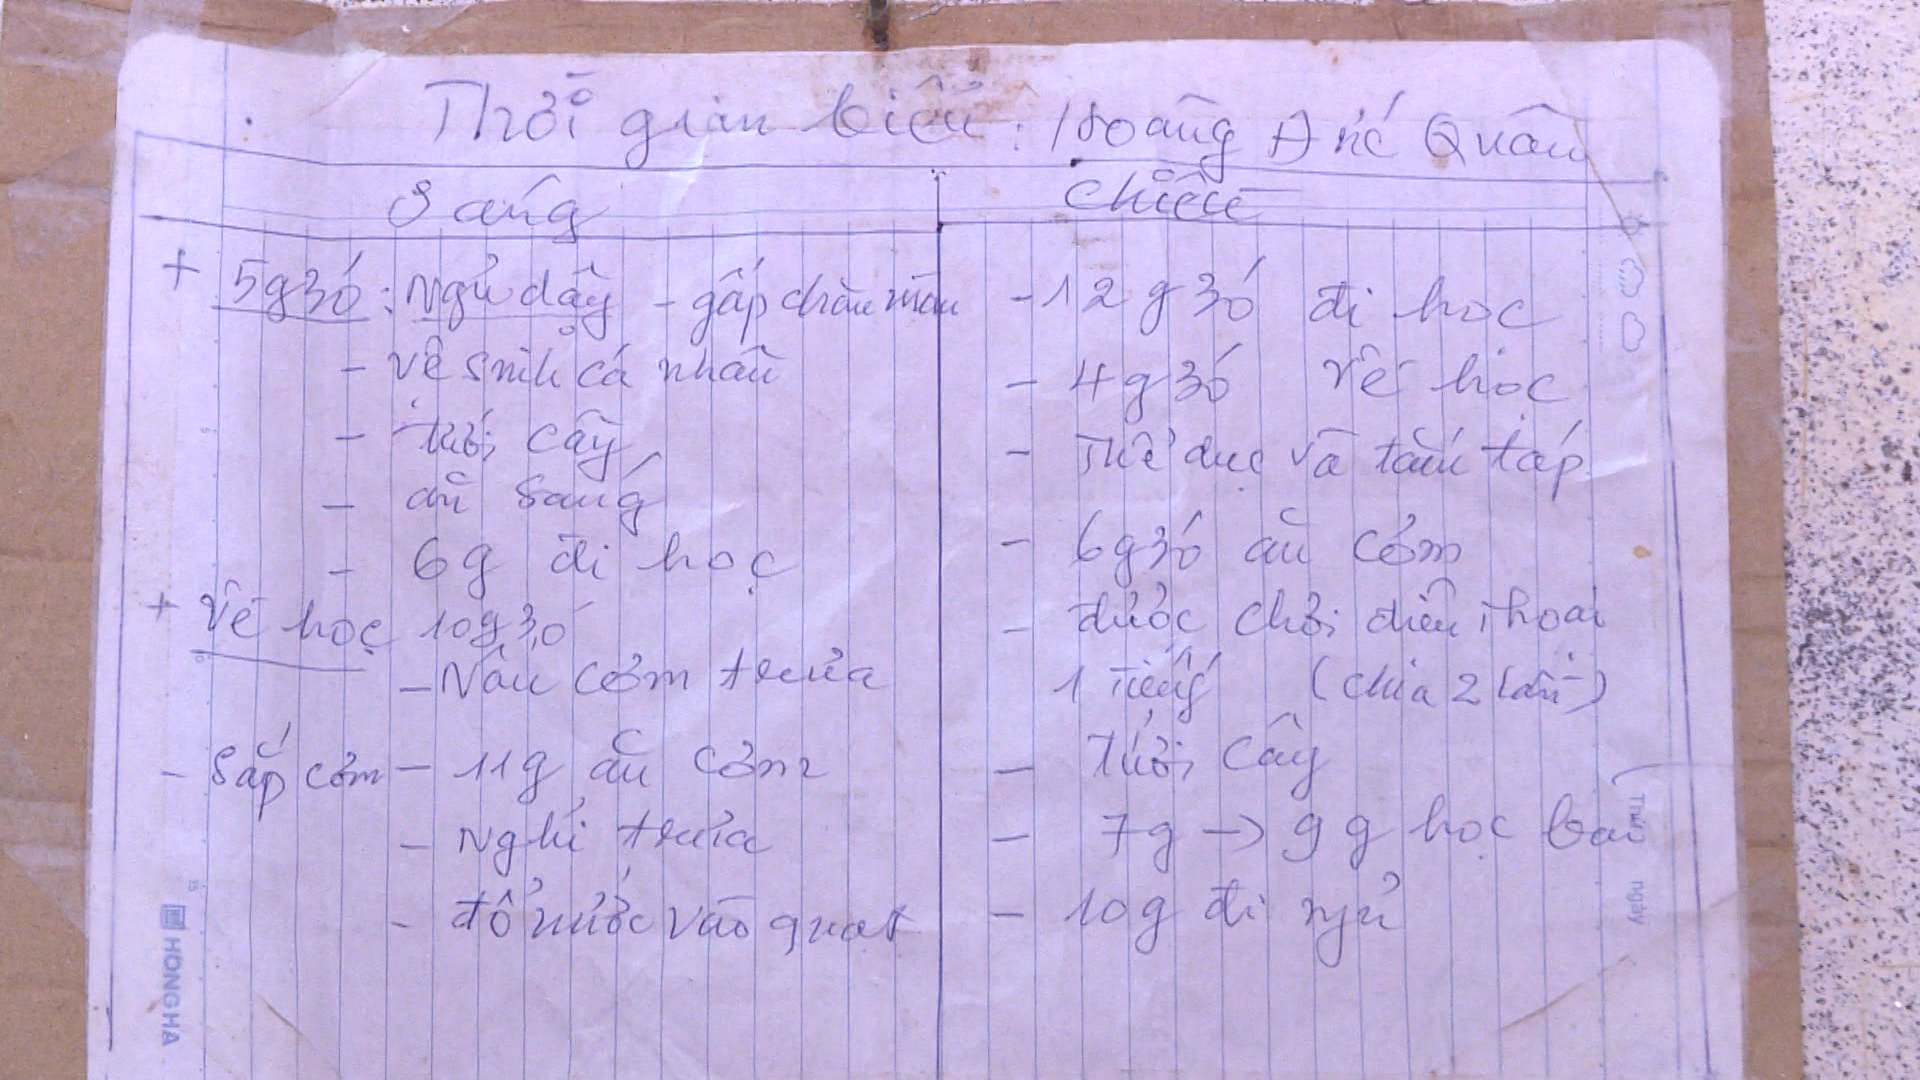 Thời gian biểu: Hoàng Anh Quân
Sáng
+ 5g30: Ngủ dậy - gấp chăn màn
- vệ sinh cá nhân
- tưới cây
- ăn sáng
- 6g đi học
+ Về học 10g30
- Nấu cơm trưa
- sắp cơm - 11g ăn cơm
- Nghỉ trưa
- đổ nước vào quạt
Chiều
- 12g30 đi học
- 4g30 về học
- Thể dục và tắm táp
- 6g30 ăn cơm
- được chơi điện thoại
1 tiếng (chia 2 lần)
- tưới cây
- 7g -> 9g học bài
- 10g đi ngủ
HONG HA
Thứ
ngày